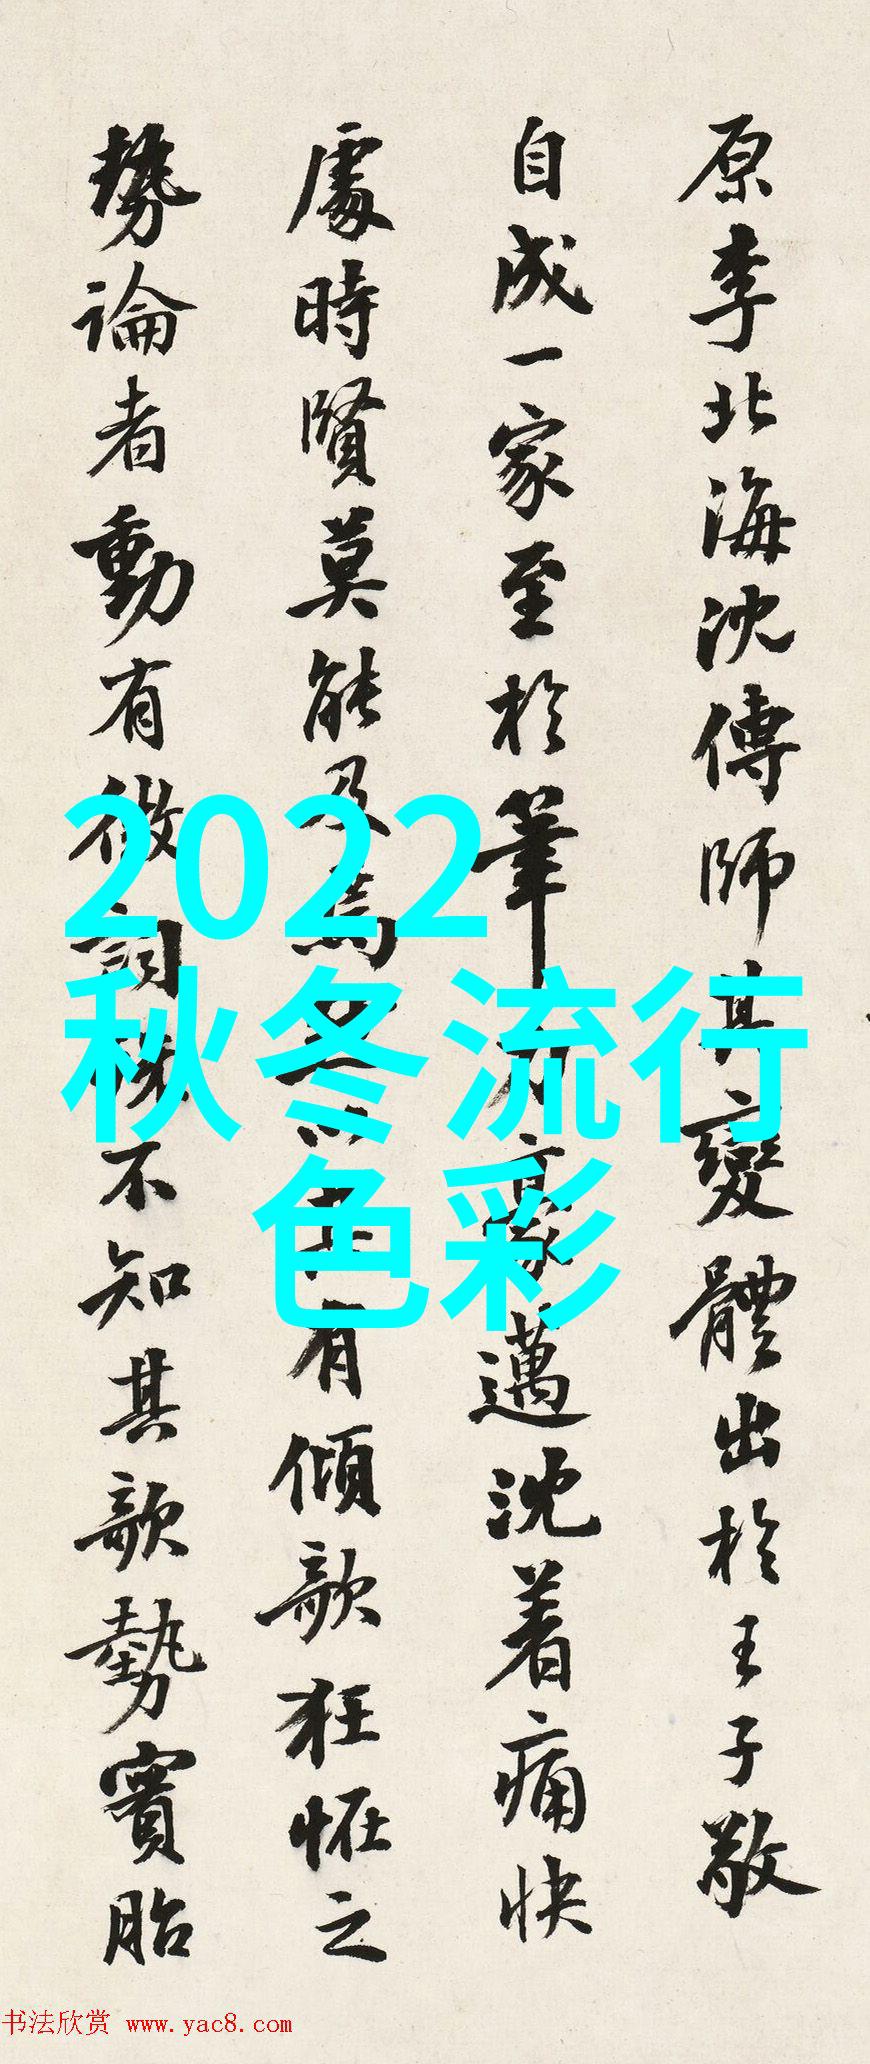 原李北海沈傳師其變體出於王子敬
自成一家至於筆力豪邁沈着痛快
處時賢莫能及焉其有傾欹狂怪之
勢論者動有微詞殊不知其欹勢實胎
2022
秋冬流行
色彩
书法欣赏 www.yac8.com